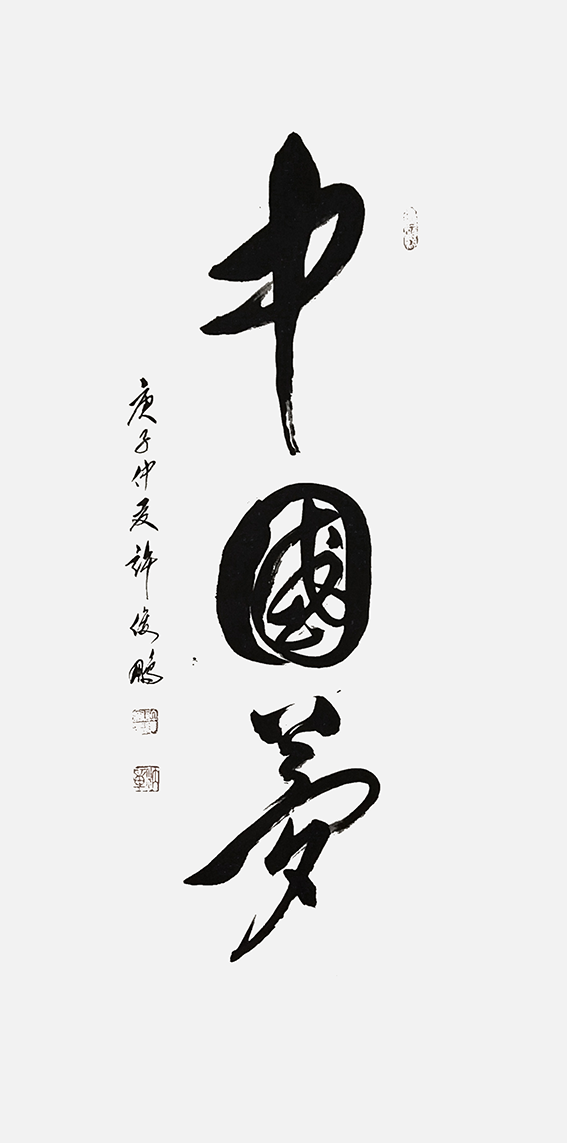 中國夢
庚子仲夏許俊鵬